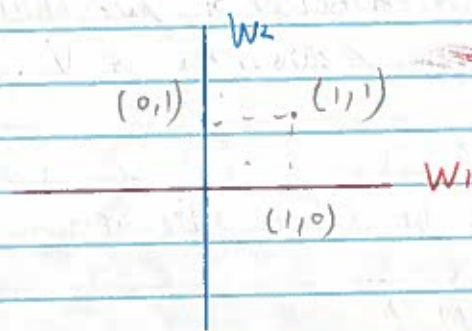 W2
(0,1) (1,1)
W1
(1,0)